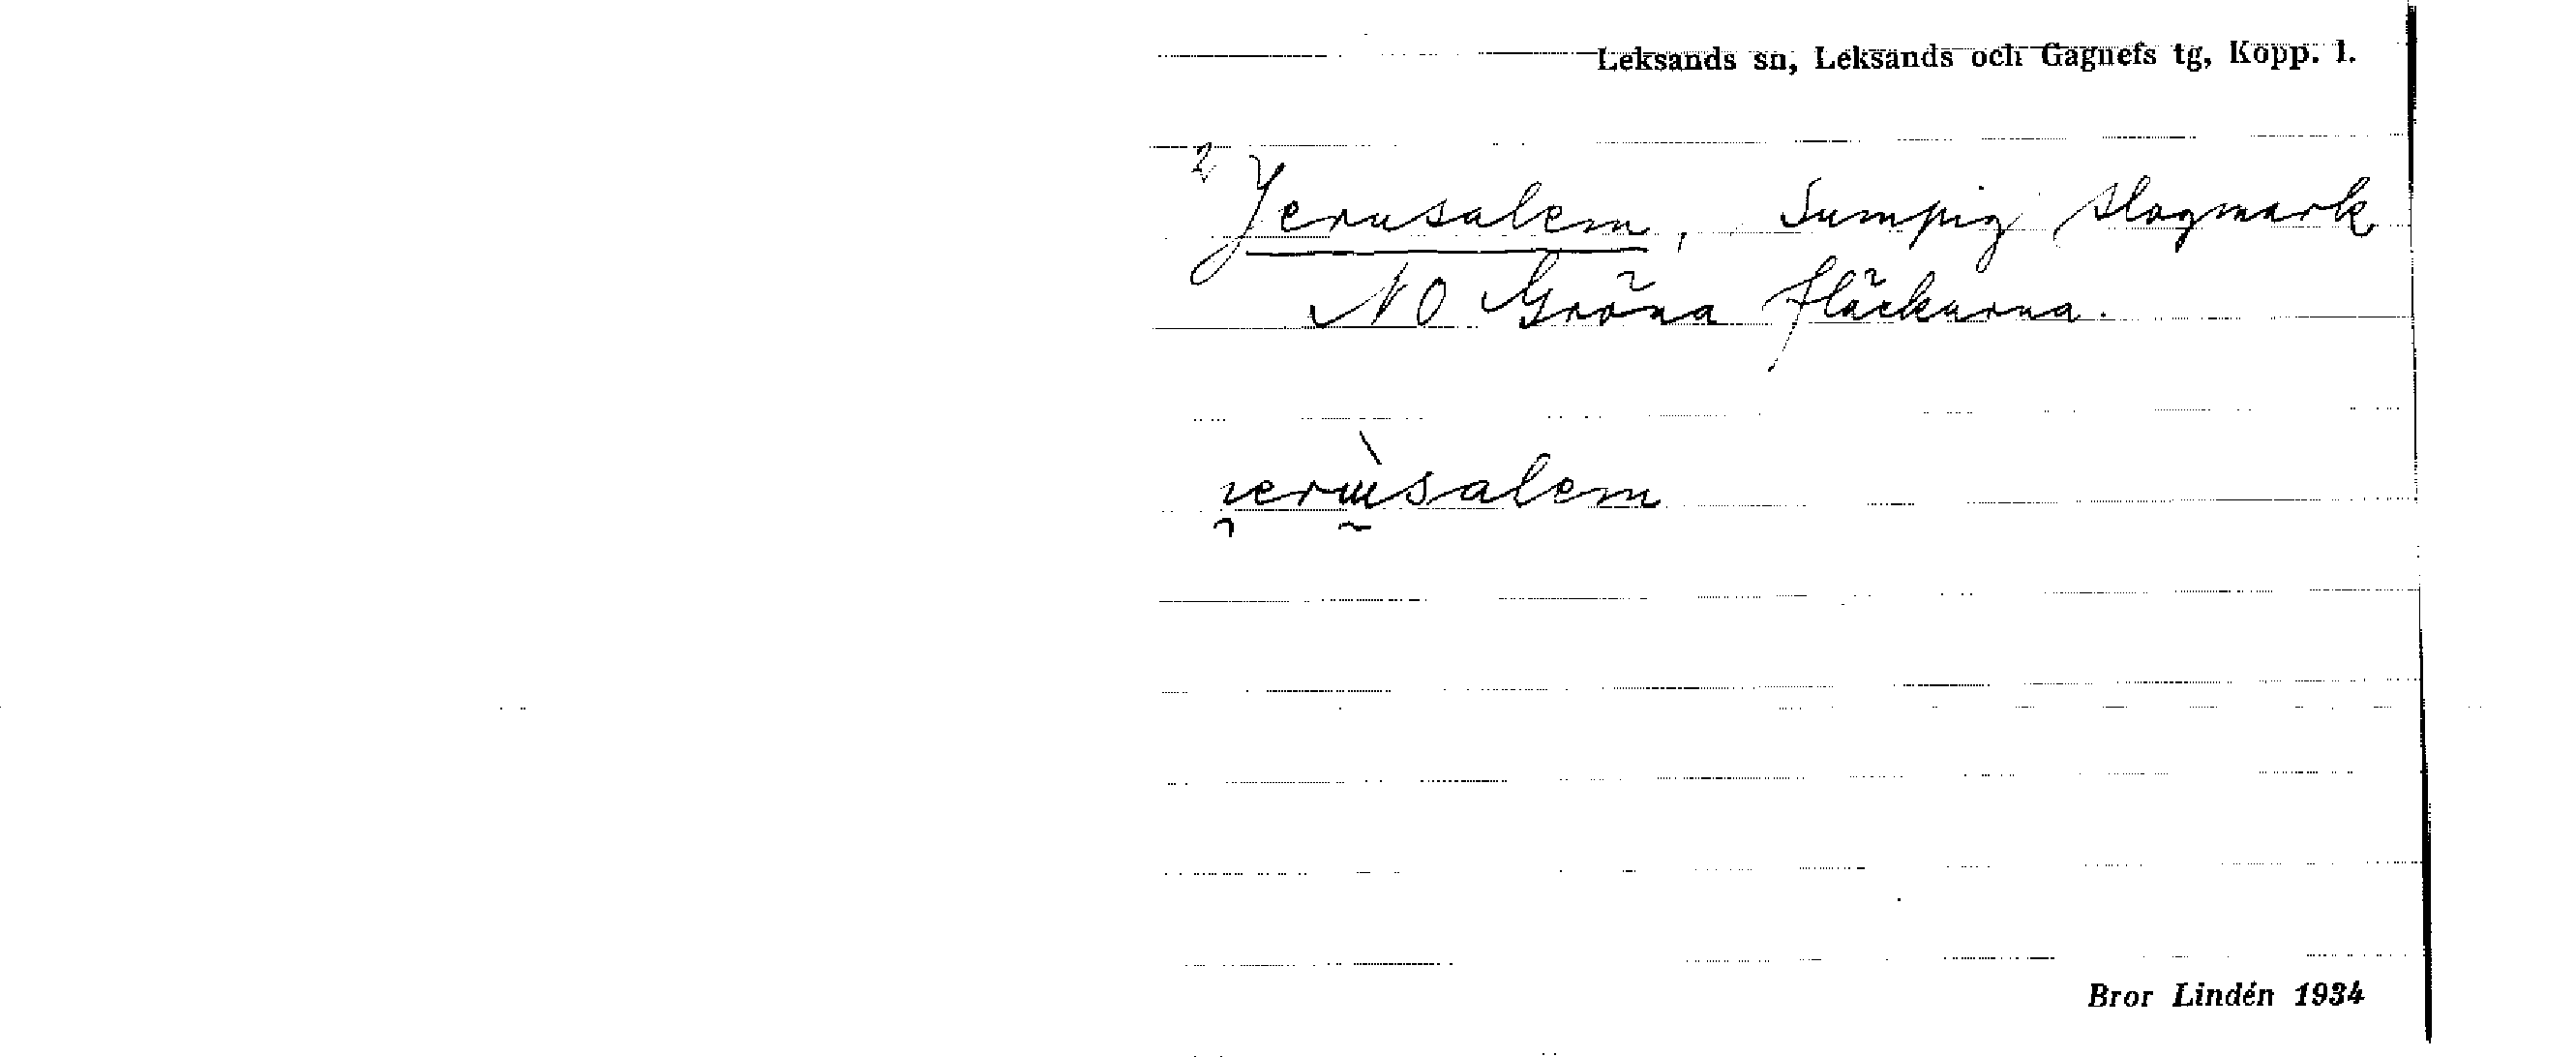 Leksands sn, Leksands och Gagnefs tg, Kopp. l.
2 Jerusalem, Sumpig slogmark
NO Gröna fläckarna.
Bror Lindén 1934